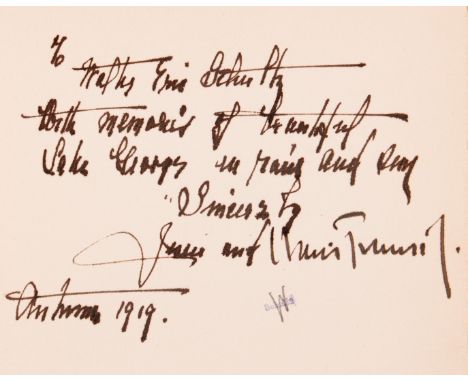 To
Walter Eric Schultz
With memories of beautiful
Lake George in rain and sun
Sincerely
and
Autumn 1919.